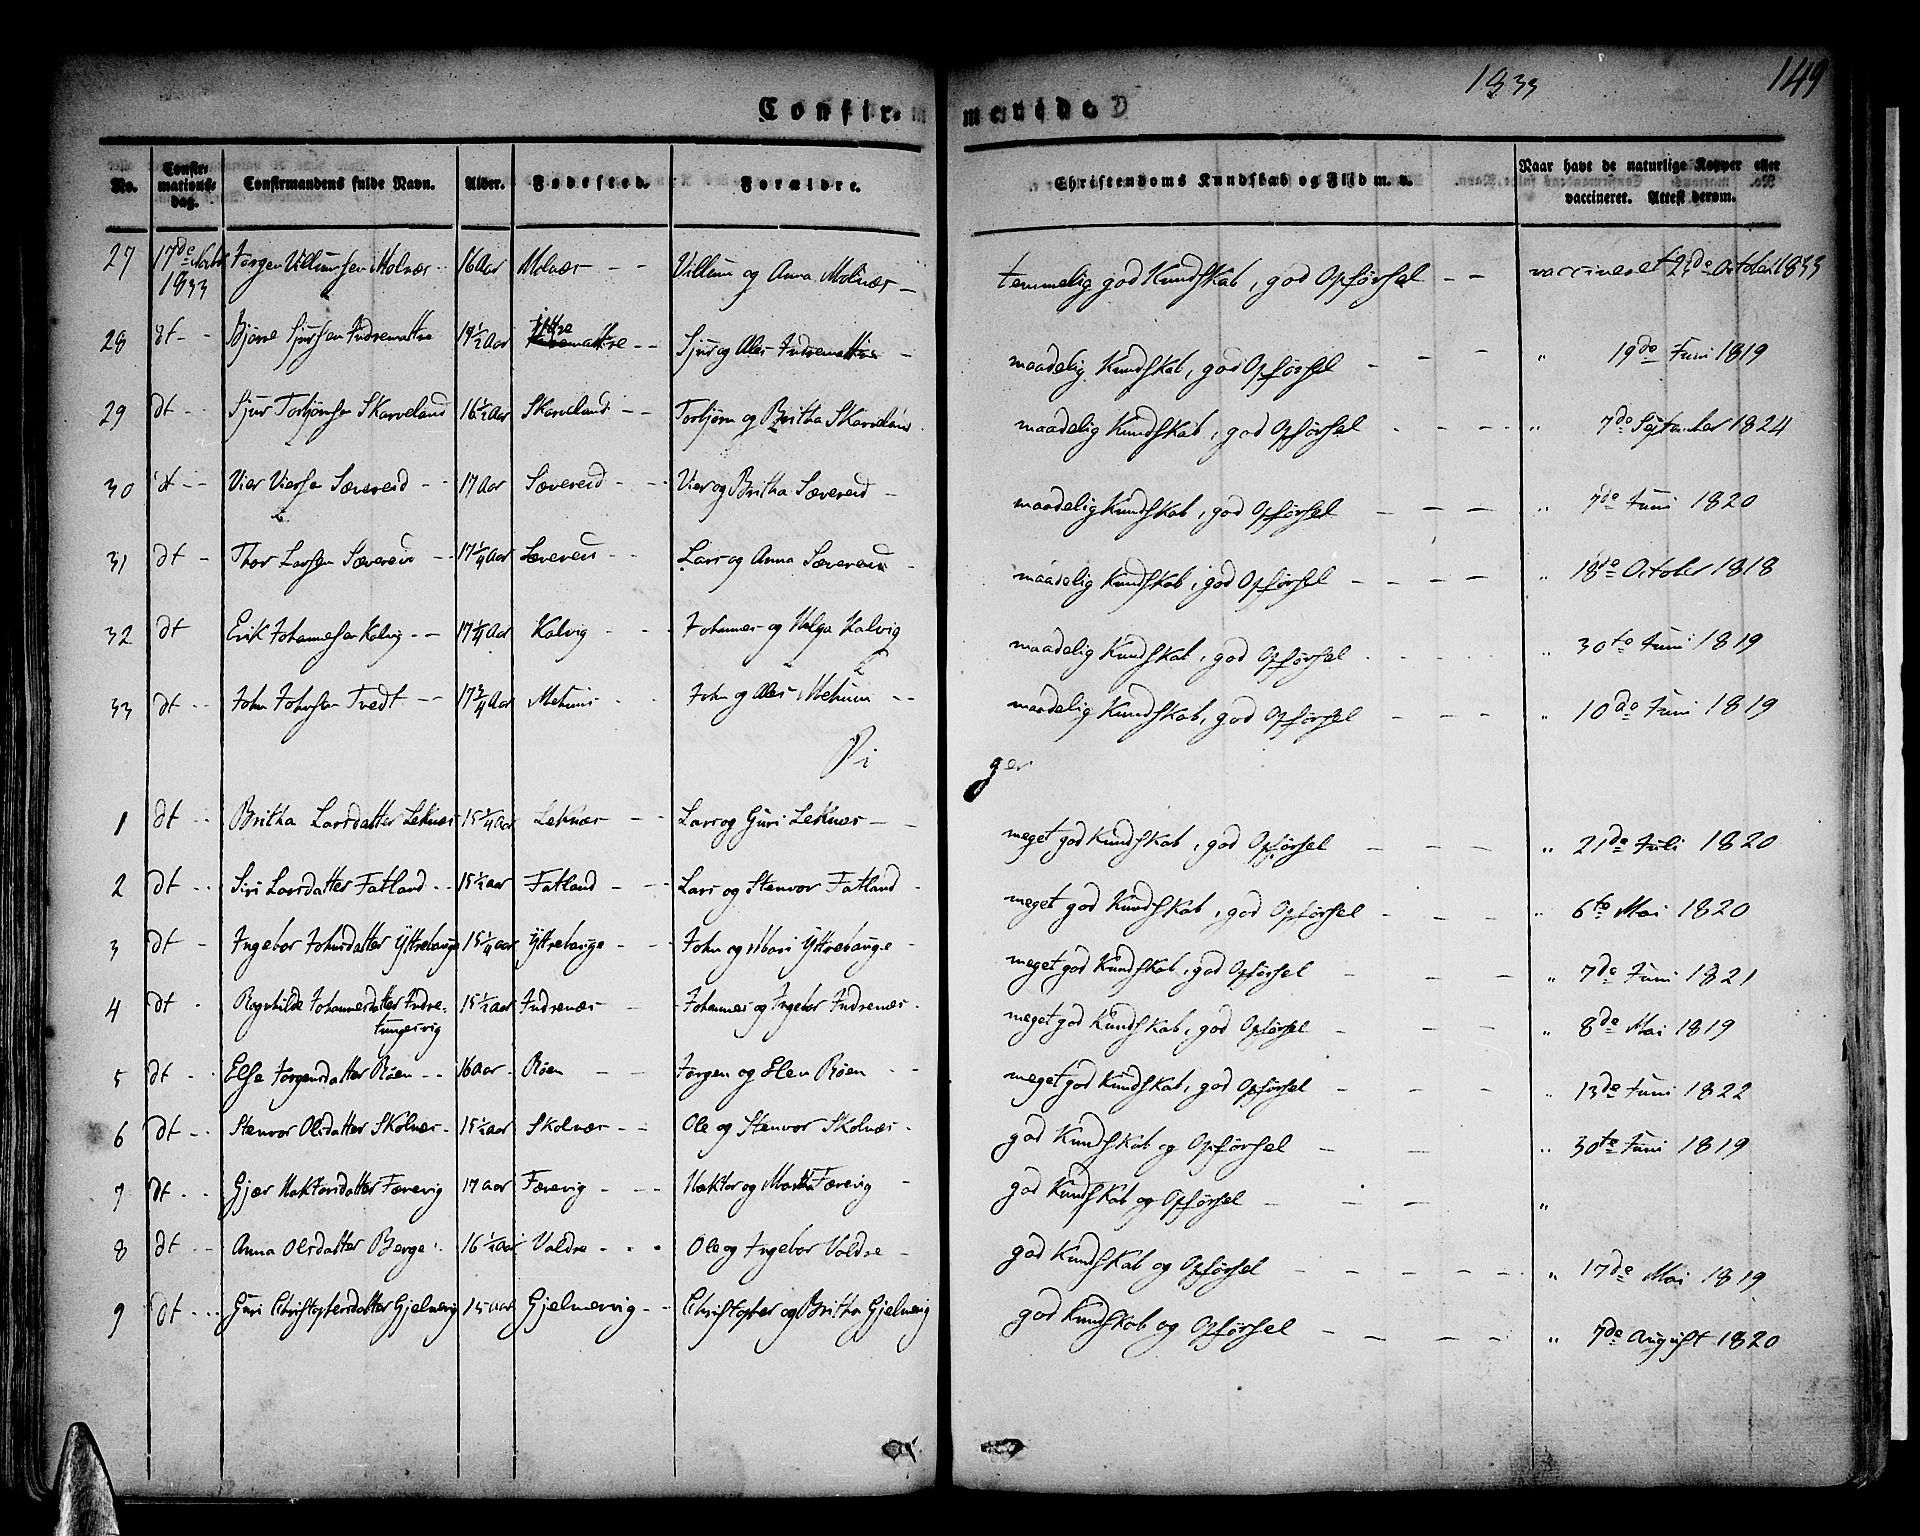 1833
149
Confir- mende
No. Confir-mations-dag. Confirmandens fulde Navn. Alder. Fødested. Forældre. Christendoms Kundskab og Flid m. v. Naar havt de naturlige Kopper eller vaccineret. Attest derom.
27 17de 1833 Jørgen Villumsen Molnæs 16 Aar Molnæs - - Villum og Anna Molnæs - temmelig god Kundskab, god Opførsel - - vaccineret 23de October 1833
28 dt - Bjørne Sjursen Indremattre 19 1/2 Aar Ittre - - Sjur og Ales Indremattre - maadelig Kundskab, god Opførsel - - - " 19de Juni 1819
29 dt - - Sjur Torbjørnsen Skarveland 16 1/2 Aar Skarveland - - Torbjørn og Britha Skarveland maadelig Kundskab, god Opførsel - - - - " 7de September 1824
30 dt - - Vier Viersen Sævereid - - 17 Aar Sævereid - - Vier og Britha Sævereid - maadelig Kundskab, god Opførsel - - - " 7de Juni 1820
31 dt - Thor Larsen Sævereid - - 17 1/4 Aar Sævereid - - Lars og Anna Sævereid - maadelig Kundskab, god Opførsel - - - - " 18de October 1818
32 dt Erik Johannesen Kalvig - - 17 1/4 Aar Kalvig - - Johannes og Helga Kalvig maadelig Kundskab, god Opførsel - - - - " 30te Juni 1819
33 dt - - John Johnsen Tvedt - - 17 3/4 Aar Mehuus - - John og Ales Mehuus - - maadelig Kundskab, god Opførsel - - - " 10de Juni 1819
Pi ger
1 dt - - Britha Larsdatter Leknæs 15 1/4 Aar Leknæs - - Lars og Guri Leknæs - - meget god Kundskab, god Opførsel - - - " 21de Juli 1820
2 dt - - Siri Larsdatter Fatland - - 15 1/2 aar Fatland - - Lars og Stenvor Fatland - meget god Kundskab, god Opførsel - - - " 6te Mai 1820
3 dt - Ingebor Johnsdatter Yttrebauge 15 1/4 aar Yttrebauge - - John og Mari Yttrebauge - meget god Kundskab, god Opførsel - - - " 7de Juni 1821
4 dt - Ragnhilde Johannesdatter Indre-
tungesvig 15 1/2 aar Indrenæs - - Johannes og Ingebor Indrenæs - meget god Kundskab, god Opførsel - - - " 8de Mai 1819
5 dt - - Else Jørgensdatter Røen - - 16 aar - Røen - - Jørgen og Elen Røen - - meget god Kundskab, god Opførsel - - - " 13de Juni 1822
6 dt - - Stenvor Olsdatter Skolnæs - 15 1/2 aar Skolnæs - - Ole og Stenvor Skolnæs - god Kundskab og Opførsel - - " 30te Juni 1819
7 dt - - Gjær Haktorsdatter Færevig 17 aar Færevig - - - Haktor og Martha Færevig - god Kundskab og Opførsel - - - "
8 dt - - Anna Olsdatter Berge - 16 1/2 aar Valdre - - - Ole og Ingebor Valdre - god Kundskab og Opførsel - - - - " 17de Mai 1819
9 dt - - Guri Christophersdatter Gjelmervig 15 aar Gjelmervig - - Christopher og Britha Gjelmervig god Kundskab og Opførsel - - - - " 7de August 1820